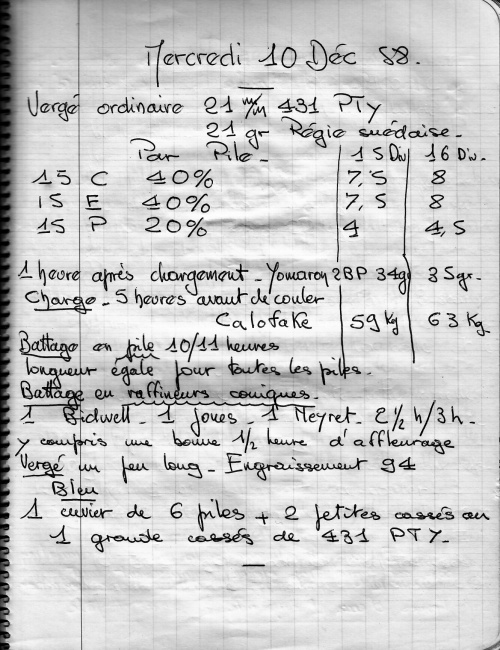 Mercredi 10 Déc 88.
Vergé ordinaire 21 m/m 431 PTY
21 gr Régie suédaise.
Par Pile. 15 Div 16 Div.
15 C 40% 7,5 8
15 E 40% 7,5 8
15 P 20% 4 4,5
1 heure après chargement - 2BP 34g 35gr.
Charge - 5 heures avant de couler
Calofake 59 Kg 63 Kg
Battage en pile 10/11 heures
longueur égale pour toutes les piles.
Battage en raffineurs coniques.
1 Bidwell - 1 Joues - 1 Neyret - 2 1/2 h / 3 h.
y compris une bonne 1/2 heure d'affleurage
Vergé un peu long - Engraissement 94
Bleu
1 cuvier de 6 piles + 2 petites cassés ou
1 grande cassés de 431 PTY.